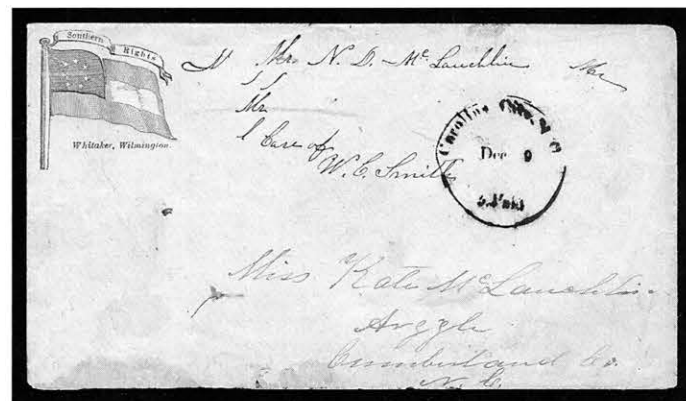 Southern Rights
Whitaker, Wilmington.
Mrs N. D. McLauchlin
Mr
Care of
W. C. Smith
Carolina City, N. C.
Dec 9
5 Paid
Miss Kate McLauchlin
Argyle
Cumberland Co.
N. C.